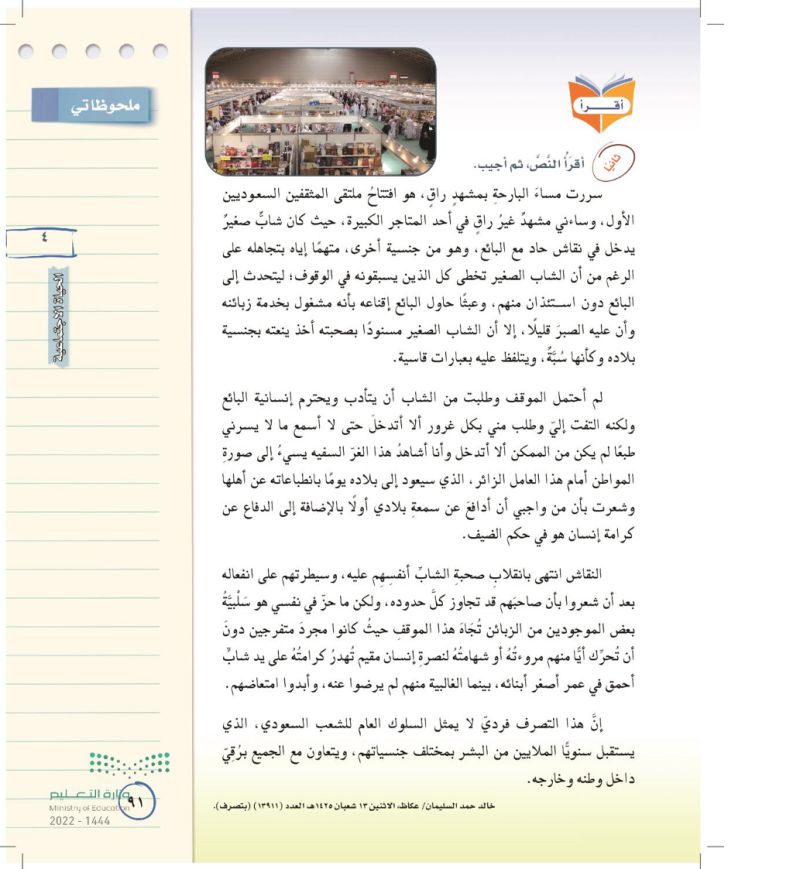 ملحوظاتي
٤
الحياة الاجتماعية
أقـــرأ
ثانيًا
أقرَأُ النَّصَّ، ثم أجيب.
سررت مساءَ البارحةِ بمشهدٍ راقٍ، هو افتتاحُ ملتقى المثقفين السعوديين
الأول، وساءني مشهدٌ غيرُ راقٍ في أحد المتاجر الكبيرة، حيث كان شابٌّ صغيرٌ
يدخل في نقاش حاد مع البائع، وهو من جنسية أخرى، متهمًا إياه بتجاهله على
الرغم من أن الشاب الصغير تخطى كل الذين يسبقونه في الوقوف؛ ليتحدث إلى
البائع دون اسـتئذان منهم، وعبثًا حاول البائع إقناعه بأنه مشغول بخدمة زبائنه
وأن عليه الصبرَ قليلًا، إلا أن الشاب الصغير مسنودًا بصحبته أخذ ينعته بجنسية
بلاده وكأنها سُبَّةٌ، ويتلفظ عليه بعبارات قاسية.
لم أحتمل الموقف وطلبت من الشاب أن يتأدب ويحترم إنسانية البائع
ولكنه التفت إليّ وطلب مني بكل غرور ألا أتدخلَ حتى لا أسمع ما لا يسرني
طبعًا لم يكن من الممكن ألا أتدخل وأنا أشاهدُ هذا الغرّ السفيه يسيءُ إلى صورةِ
المواطن أمام هذا العامل الزائر، الذي سيعود إلى بلاده يومًا بانطباعاته عن أهلها
وشعرت بأن من واجبي أن أدافعَ عن سمعةِ بلادي أولًا بالإضافة إلى الدفاع عن
كرامة إنسان هو في حكم الضيف.
النقاش انتهى بانقلابِ صحبةِ الشابِّ أنفسِهم عليه، وسيطرتهم على انفعاله
بعد أن شعروا بأن صاحبَهم قد تجاوز كلَّ حدوده، ولكن ما حزّ في نفسي هو سَلْبِيَّةُ
بعض الموجودين من الزبائن تُجَاهَ هذا الموقفِ حيثُ كانوا مجردَ متفرجين دونَ
أن تُحرِّك أيًّا منهم مروءتُهُ أو شهامتُهُ لنصرةِ إنسان مقيم تُهدرُ كرامتُهُ على يد شابٍّ
أحمق في عمر أصغر أبنائه، بينما الغالبية منهم لم يرضوا عنه، وأبدوا امتعاضهم.
إنَّ هذا التصرف فرديّ لا يمثل السلوك العام للشعب السعودي، الذي
يستقبل سنويًّا الملايين من البشر بمختلف جنسياتهم، ويتعاون مع الجميع برُقِيّ
داخل وطنه وخارجه.
خالد حمد السليمان/ عكاظ، الاثنين ١٣ شعبان ١٤٢٥هـ العدد (١٣٩١١) (بتصرف).
وزارة التعـــليم
Ministry of Education
2022 - 1444
٩١